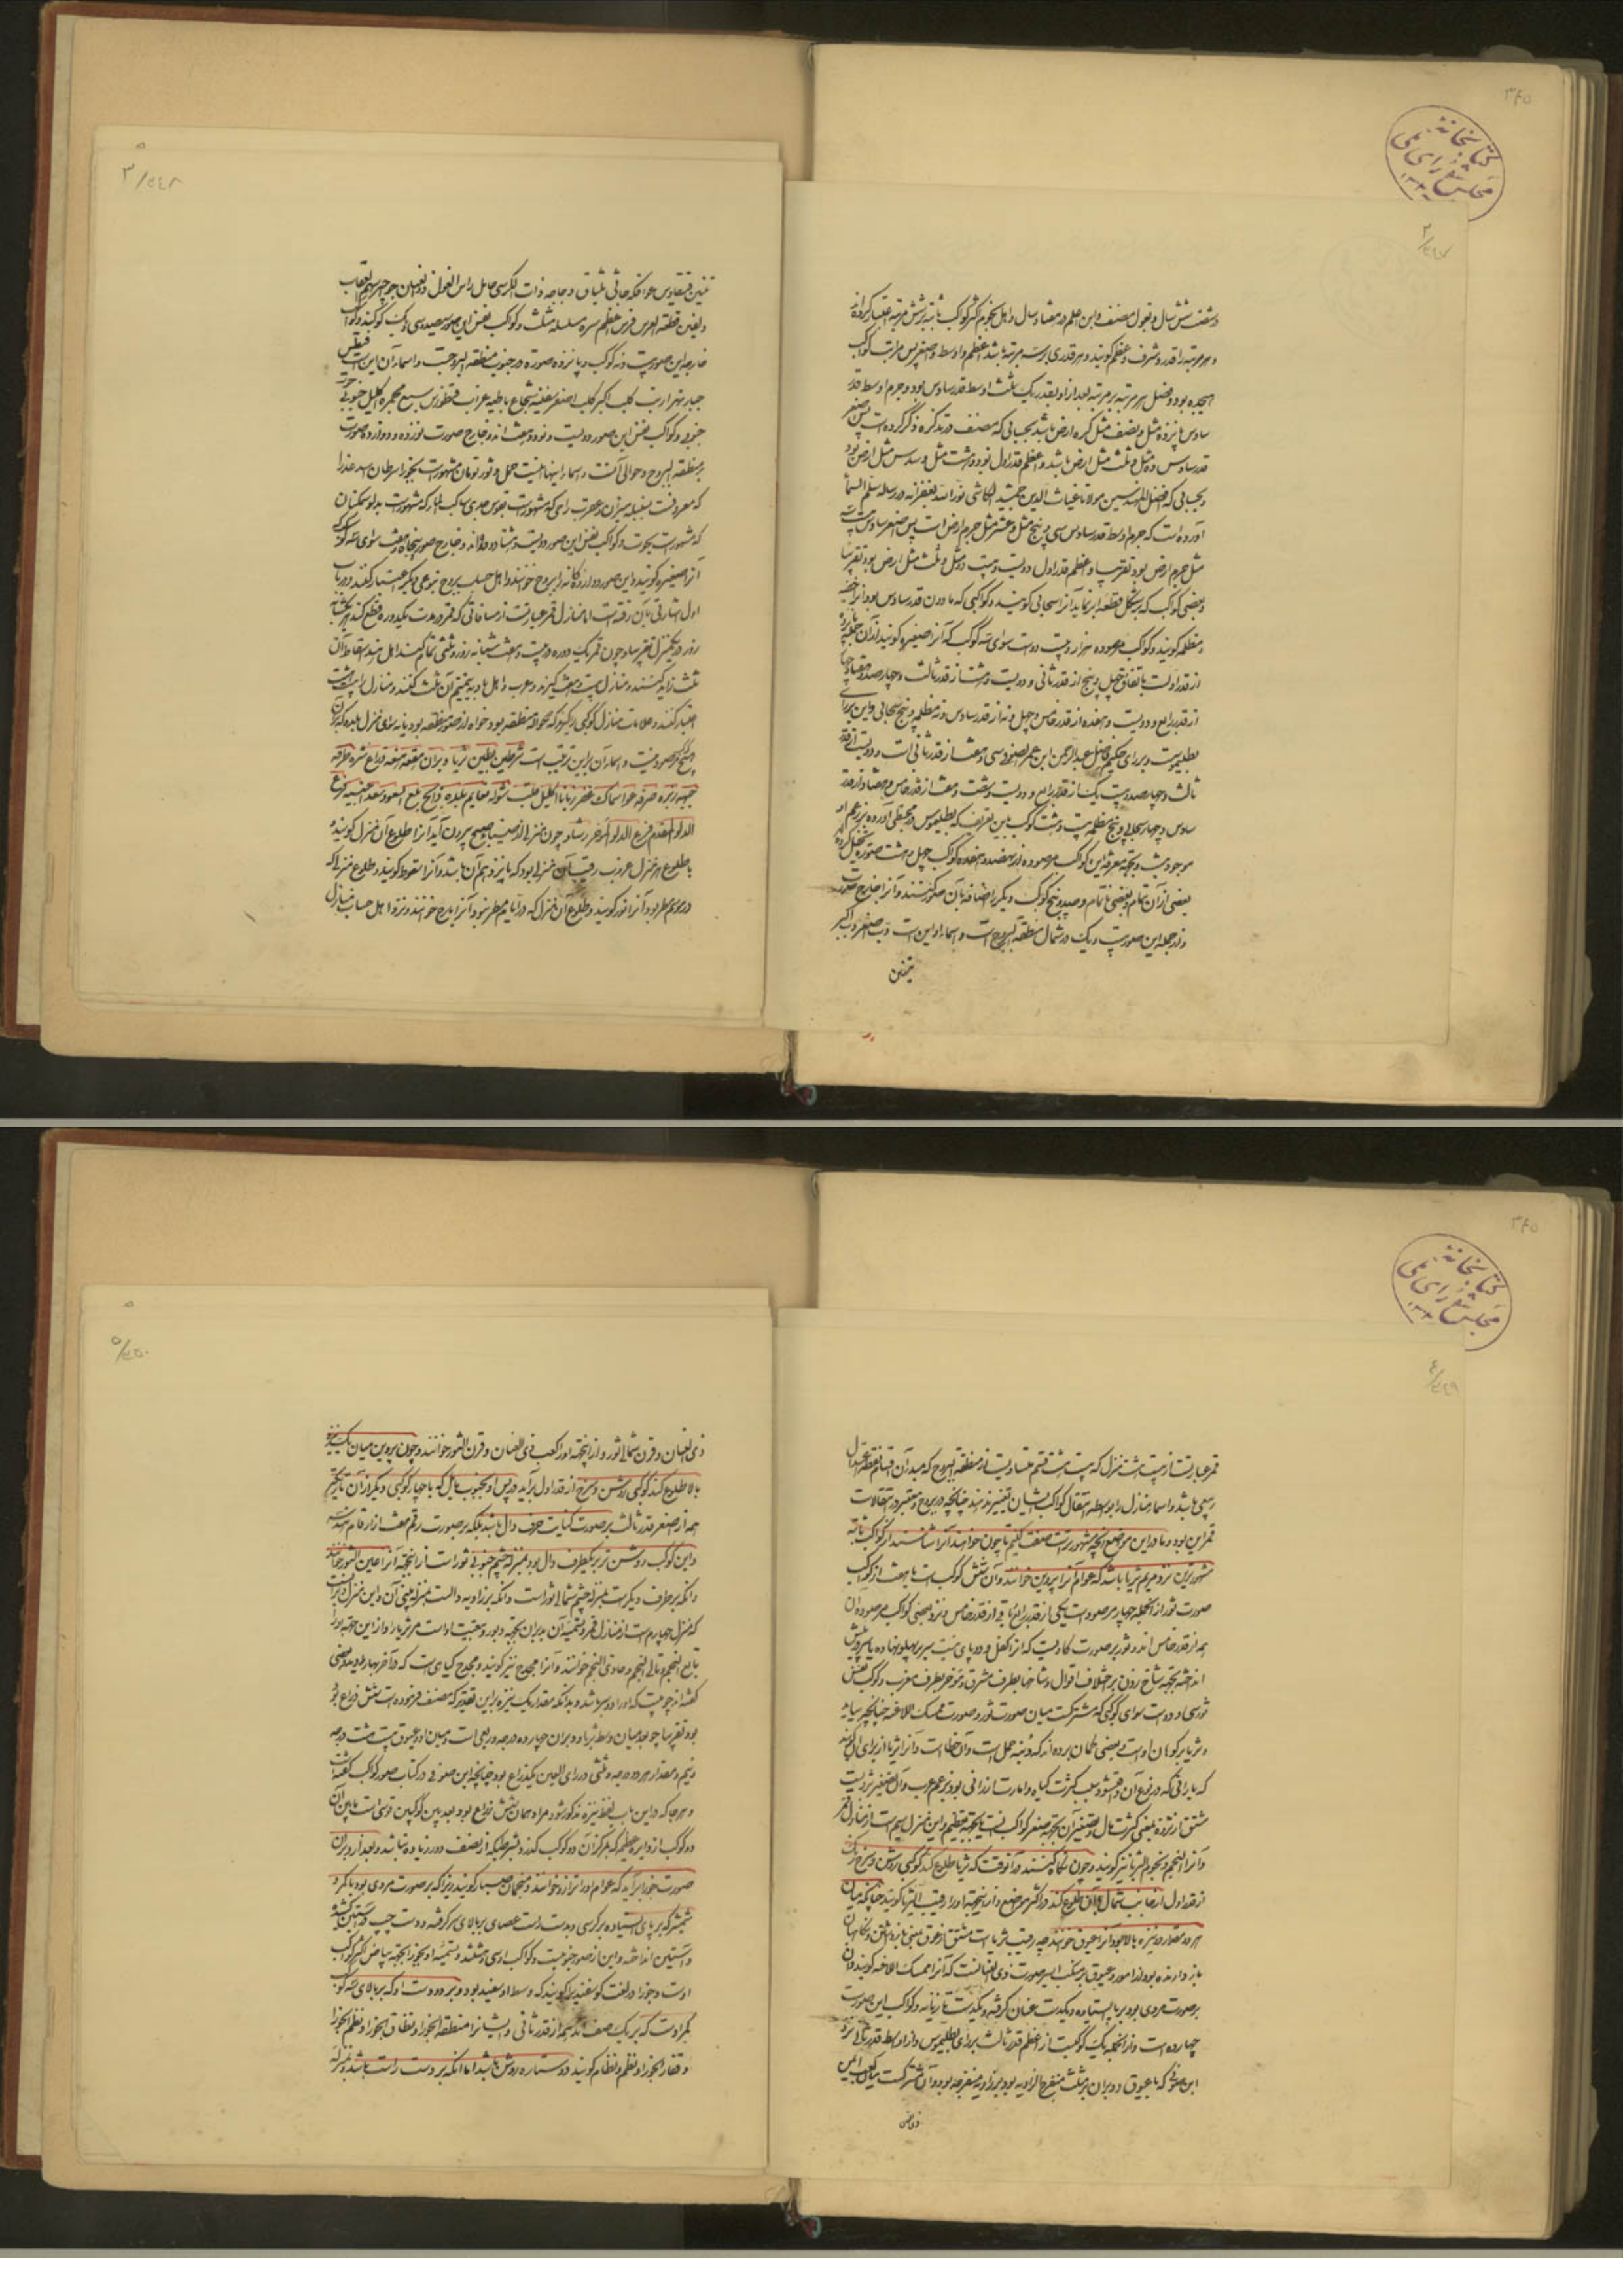 ۳۴۵
کتابخانه
مجلس شورای ملی
و شصت شش سال و بقول مصنف و ابن اعلم در هفتاد سال و اهل نجوم اکثر کواکب ثابته بر شش مرتبه اعتبار کرده‌اند
و هر مرتبه را قدر و شرف و عظم گویند و هر قدری بر سه مرتبه باشد اعظم و اوسط و اصغر پس مراتب کواکب
هیجده بود و فضل هر مرتبه بر مرتبه بعد از او بقدر یک ثلث اوسط قدر سادس بود و جرم اوسط قدر
سادس پانزده مثل و نصف مثل کره ارض باشد بحسابی که مصنف در تذکره ذکر کرده است پس اصغر
قدر سادس ده مثل و ثلث مثل ارض باشد و اعظم قدر اول نود و هشت مثل و سدس مثل ارض بود
و بحسابی که افضل المهندسین مولانا غیاث الدین جمشید الکاشی در رساله سلم السما
آورده است که جرم اوسط قدر سادس سی و پنج مثل و عشر مثل جرم ارض است پس اصغر سادس
مثل جرم ارض بود تقریبا و اعظم قدر اول دویست و بیست و دو مثل و ثلث مثل ارض بود تقریبا
و بعضی کواکب که بر شکل قطعه ابر نماید آنرا سحابی گویند و کواکبی که مادون قدر سادس بود آنرا خفیه
و مظلمه گویند و کواکب مرصوده هزار و بیست و دو است سوای سه کوکب که آنرا صفیره گویند از آن جمله پانزده
از قدر اولست باتفاق چهل و پنج از قدر ثانی و دویست و هشت از قدر ثالث و چهار صد و هفتاد و چهار
از قدر رابع و دویست و هفده از قدر خامس و چهل و نه از قدر سادس و نه مظلمه و پنج سحابی و این برای
بطلیموس و بر رای حکیم فاضل عبدالرحمن ابن عمر الصوفی سی و هفت از قدر ثانی است و دویست از قدر
ثالث و چهارصد و بیست یک از قدر رابع و دویست و شصت و هفت از قدر خامس و هفتاد از قدر
سادس و چهار سحابی و پنج مظلمه
بعضی از آن تمام و بعضی ناتمام و صد و پنج کوکب دیگر را اضافه بآن صور کنند و آنرا خارج صورت
و از جمله این صور بیست و یک در شمال منطقه البروج است و اسماء او این است دب اصغر دب اکبر
تنین
تنین قیقاوس عوا فکه جاثی شلیاق دجاجه ذات الکرسی حامل راس الغول ذو العنان حوا حیه سهم عقاب
دلفین قطعه الفرس فرس اعظم مره مسلسله مثلث و کواکب نفس این صور سیصد و سی و یک کوکبند و کواکب
خارجه این صور بیست و نه کوکب و پانزده صورة در جنوب منطقه البروجست و اسماء آن اینست قیطس
جبار نهر ارنب کلب اکبر کلب اصغر سفینه شجاع باطیه غراب قنطورس سبع مجمره اکلیل جنوبی حوت
جنوبی و کواکب نفس این صور دویست و نود و هفت اند و خارج صورت نوزده و دوازده صورت
بر منطقه البروج و حوالی آنست و اسماء اینها اینست حمل و ثور توءمان که مشهورست بجوزا سرطان اسد عذرا
که معروفست بسنبله میزان و عقرب رامی که مشهورست بقوس جدی ساکب الماء که مشهورست بدلو سمکتان
که مشهورست بحوت و کواکب نفس این صور دویست و هشتاد و نه اند و خارج صور پنجاه و هفت سوای سه که
آنرا صفیره گویند و این صور دوازده گانه را بروج خوانند و اهل حساب بروج بنوعی دیگر اعتبار کنند و در باب
اول اشارتی بآن رفته است اما منازل قمر عبارتست از مسافاتی که قمر در مدت یکدوره قطع کند هر یکشبانه
روز در یک منزل تقریبا و چون قمر یک دوره در بیست و هفت شبانه روز و ثلثی تمام کند اهل هند اسقاط آن
ثلث زاید کنند و منازل بیست و هفت گیرند و عرب و اهل بادیه تتمیم آن ثلث کنند و منازل را بیست و هشت
اعتبار کنند و علامات منازل کوکبی را گیرند که حوالی منطقه بود
هیچ کوکب مرصود نیست و اسماء آن باین ترتیب است شرطین بطین ثریا دبران هقعه هنعه ذراع نثره طرفه
جبهه زبره صرفه عوا سماک غفر زبانا اکلیل قلب شوله نعایم بلده ذابح بلع السعود سعد اخبیه فرغ
الدلو المقدم فرغ الدلو المؤخر رشا و چون منزلی از ضیاء صبح بیرون آید آنرا طلوع آن منزل گویند و
با طلوع هر منزل غروب رقیب آن منزلی بود که پانزدهم آن باشد و آنرا سقوط گویند و طلوع منزلی که
در موسم مطر بود آنرا نوء گویند و طلوع آن منزل که در ایام مطر نبود آنرا بارح خوانند و نزد اهل حساب منازل
۳۴۵
کتابخانه
مجلس شورای ملی
قمر عبارتست از بیست و هشت منزل که بیست و هشت قسم متساویست از منطقه البروج که مبدء آن اقسام نقطه اعتدال
ربیعی باشد و اسماء منازل را بواسطه انتقال کواکب ایشان تغییر ندهند چنانچه در بروج و معتبر در انتقالات
قمر این بود و ما در این موضع آنچه مشهورترست صفت کنیم تا چون خواهند آنرا شناسند از کواکب ثابته
مشهورترین نزد مردم ثریا باشد که عوام آنرا پروین خوانند و آن شش کوکب است یا هفت از کواکب
صورت ثور از آنجمله چهار مرصود است یکی از قدر رابع باقی از قدر خامس و نزد بعضی کواکب مرصوده آن
همه از قدر خامس اند و ثور بر صورت گاویست که او را کفل و دو پای نیست سر بر پهلو نهاده یا سر پیش
انداخته بجهة شاخ زدن بر اختلاف اقوال و شاخها بطرف مشرق و مؤخر بطرف مغرب و کواکب نفس
ثور سی و دو است سوای کوکبی که مشترکست میان صورت ثور و صورت ممسک الاعنه چنانچه بیاید
و ثریا بر کوهان اوست و بعضی گمان برده‌اند که دنبه حمل است و آن خطا است و آنرا ثریا از برای آن گویند
که بارانی که در نوء آن واقع شود سبب کثرت گیاه و امارت ارزانی بود بزعم عرب و آن تصغیر ثرویست
مشتق از ثروه بمعنی کثرت مال و تصغیر آن بجهة صغر کواکب نیست بلکه بجهة تعظیم و این منزل سیم است از منازل قمر
و آنرا النجم و نجوم الثریا نیز گویند و چون نگاه کنند در آنوقت که ثریا طلوع کند کوکبی روشن و سرخ رنگ
از قدر اول از جانب شمال با آن طلوع کند در اکثر مواضع و از اینجهة او را رقیب الثریا گویند چنانکه میان
هر دو مقدار دو نیزه بالا بود آنرا عیوق خوانند چه رقیب ثریا است مشتق از عوق بمعنی بازداشتن و نگاهبان
باز دارنده بود از امور و عیوق بر منکب ایسر صورت ذی العنانست که آنرا ممسک الاعنه گویند و آن
بر صورت مردی بود بر پا ایستاده و یکدست عنان گرفته و یکدست تازیانه و کواکب این صورت
چهارده است و از آنجمله یک کوکبست از اعظم قدر ثالث برای بطلیموس و از اوسط قدر ثانی نزد
ابن صوفی که با عیوق و دبران بر مثلث منفرج الزاویه بود بر زاویه منفرجه بود و آن مشترکست میان کعب ایمن
ذی العنان
ذی العنان و قرن شمالی ثور و از اینجهة او را کعب ذی العنان و قرن الثور خوانند و چون پروین میان یک نیزه
بالا طلوع کند کوکبی روشن و سرخ از قدر اول برآید در پس او بجنوب مایل که با چهار کوکبی دیگر از آن تاریکتر
همه از اصغر قدر ثالث بر صورت کتابت حرف دال باشد بلکه بر صورت رقم هفت از ارقام هندسه
و این کوکب روشن تر بر یکطرف دال بود بمنزله چشم جنوبی ثور است از اینجهة آنرا عین الثور خوانند
و آنکه بر طرف دیگرست بمنزله چشم شمالی ثور است و آنکه بر زاویه دالست بمنزله بینی آن و این منزل دبران است
که منزل چهارم است از منازل قمر و تسمیه آن بدبران بجهة دبور و عقبیت اوست مر ثریا را و از این جهة او را
تابع النجم و تالی النجم و حادی النجم خوانند و آنرا مجدح نیز گویند و مجدح گیاهی است که در آخر بهار بلند و بعضی
گفته‌اند چوبیست که او را دو سر باشد و بدانکه مقدار یک نیزه بر این تقدیر که مصنف فرموده است شش ذراع
بود تقریبا چه بعد میان وسط ثریا و دبران چهارده درجه و ربعی است و میان او و عیوق بیست و هشت درجه
و نیم و مقدار هر دو درجه و ثلثی در رای العین یکذراع بود چنانچه ابن صوفی در کتاب صور کواکب گفته است
و هر جا که در این باب لفظ نیزه مذکور شود مراد همان شش ذراع بود و بعد بین کوکبین قوسی است مابین آن
دو کوکب از دایره عظیمه که بمرکز آن دو کوکب گذرد بشرطیکه از نصف دور زیاده نباشد و بعد از دبران
صورت جوزا برآید که عوام او را ترازو خوانند و منجمان جبار گویند زیرا که بر صورت مردی بود با کمر و
شمشیر که بر پای ایستاده بر کرسی و بدست راست عصای بر بالای سر گرفته و دست چپ در آستین کشیده
و آستین انداخته و این از صور جنوبیست و کواکب او سی و هشتند و تسمیه او بجوزا بجهة بیاض اکثر کواکب
اوست و جوزا در لغت گوسفندیرا گویند که وسط او سفید بود و بر دو دست او که بر بالای سه کوکب
کمر اوست که بر یک صف اند همه از قدر ثانی و ایشانرا منطقه الجوزا و نطاق الجوزا و نظم الجوزا
و فقار الجوزا و نظم و نظام گویند دو ستاره روشن باشد اما آنکه بر دست راست باشد بمنزله